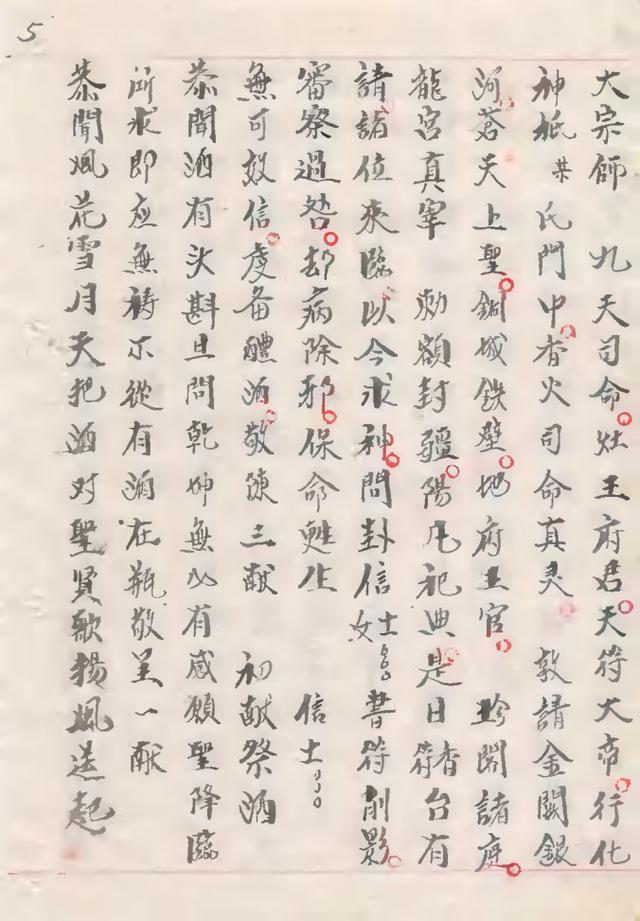 5
大宗師 九天司命灶王府君天符大帝行化
神祇某氏門中香火司命真灵 敦請金闕銀
河蒼天上聖銅城鉄壁地府王官 珍閣諸庭
龍宮真宰 勅額封疆陽凡祀典是日符香台有
請諸位來臨以今求神問卦信士女 書符削影
審察過咎却病除邪保命甦生 信士
無可效信虔备醴酒敬陳三献 初献祭酒
恭聞酒有次斟且問乾坤無以有感願聖降臨
所求即应無祷不從有酒在瓶敬呈一献
恭聞風花雪月天把酒对聖賢歌揚風送起